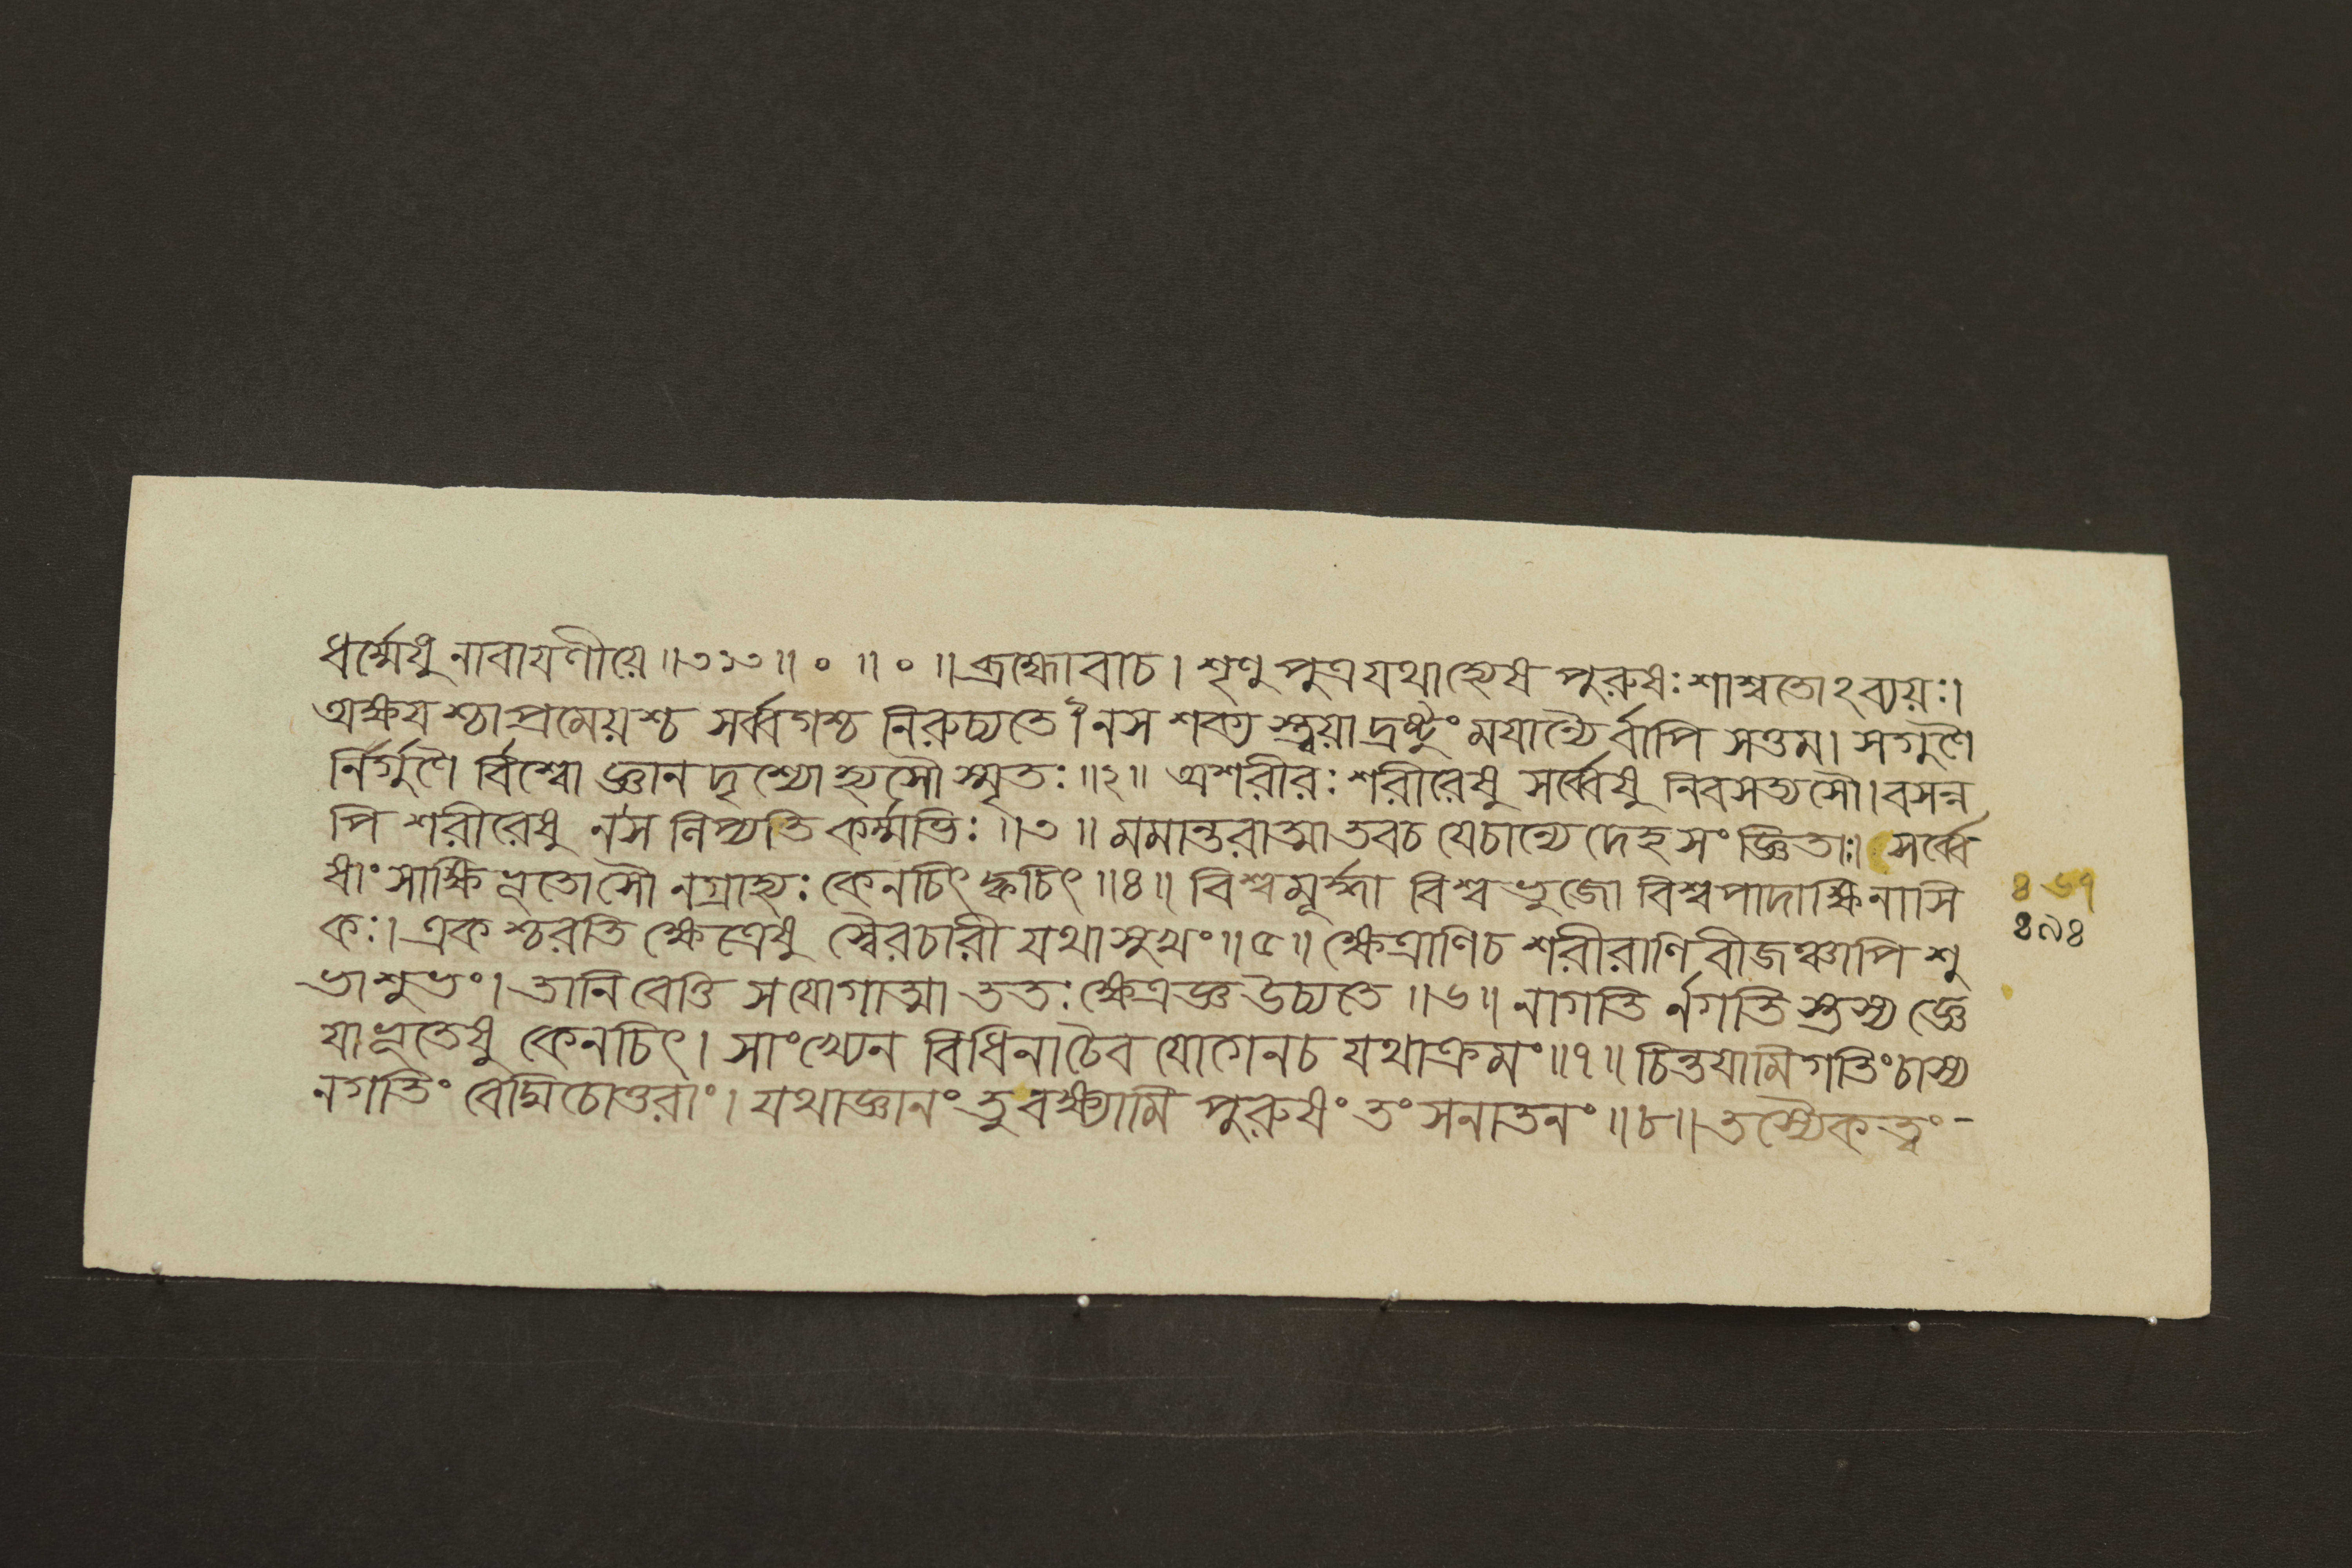 ধর্ম্মেষু নাবাযণীয়ে ॥৩১৩॥ ० ॥ ० ॥ ব্রহ্মোবাচ। শৃণু পুত্র যথাহ্যেষ পুরুষঃ শাশ্বতোঽব্যয়ঃ।
অক্ষযশ্চাপ্রমেয়শ্চ সর্ব্বগশ্চ নিরুচ্যতে।১ নস শক্য স্ত্বয়া দ্রষ্টুং মযান্যৈ র্বাপি সত্তম। সগুণৈ
র্নির্গুণৈ র্বিশ্বো জ্ঞান দৃশ্যো হ্যসৌ স্মৃতঃ ॥২॥ অশরীরঃ শরীরেষু সর্ব্বেষু নিবসত্যসৌ। বসন্ন
পি শরীরেষু ন স নিপ্যতি কর্ম্মভিঃ ॥৩॥ মমান্তরাত্মা তবচ যেচান্যে দেহসংজ্ঞিতাঃ। সর্ব্বে
ষাং সাক্ষিভূতোসৌ নগ্রাহ্যঃ কেনচিৎ ক্বচিৎ ॥৪॥ বিশ্বমূর্দ্ধা বিশ্বভুজো বিশ্বপাদাক্ষিনাসি
কঃ। একশ্চরতি ক্ষেত্রেষু স্বৈরচারী যথাসুখং ॥৫॥ ক্ষেত্রাণিচ শরীরাণি বীজঞ্চাপি শু
ভাশুভং। তানি বেত্তি সযোগাত্মা ততঃ ক্ষেত্রজ্ঞ উচ্যতে ॥৬॥ নাগতি র্নগতি স্তস্য জ্ঞে
যা ভূতেষু কেনচিৎ। সাংখ্যেন বিধিনা চৈব যোগেনচ যথাক্রমং ॥৭॥ চিন্তযামি গতিং চাস্য
নগতিং বেদ্মি চোত্তরাং। যথাজ্ঞানং তু বক্ষ্যামি পুরুষং তং সনাতনং ॥৮॥ তস্যৈকত্বং-
৪৬৭
৪৯৪